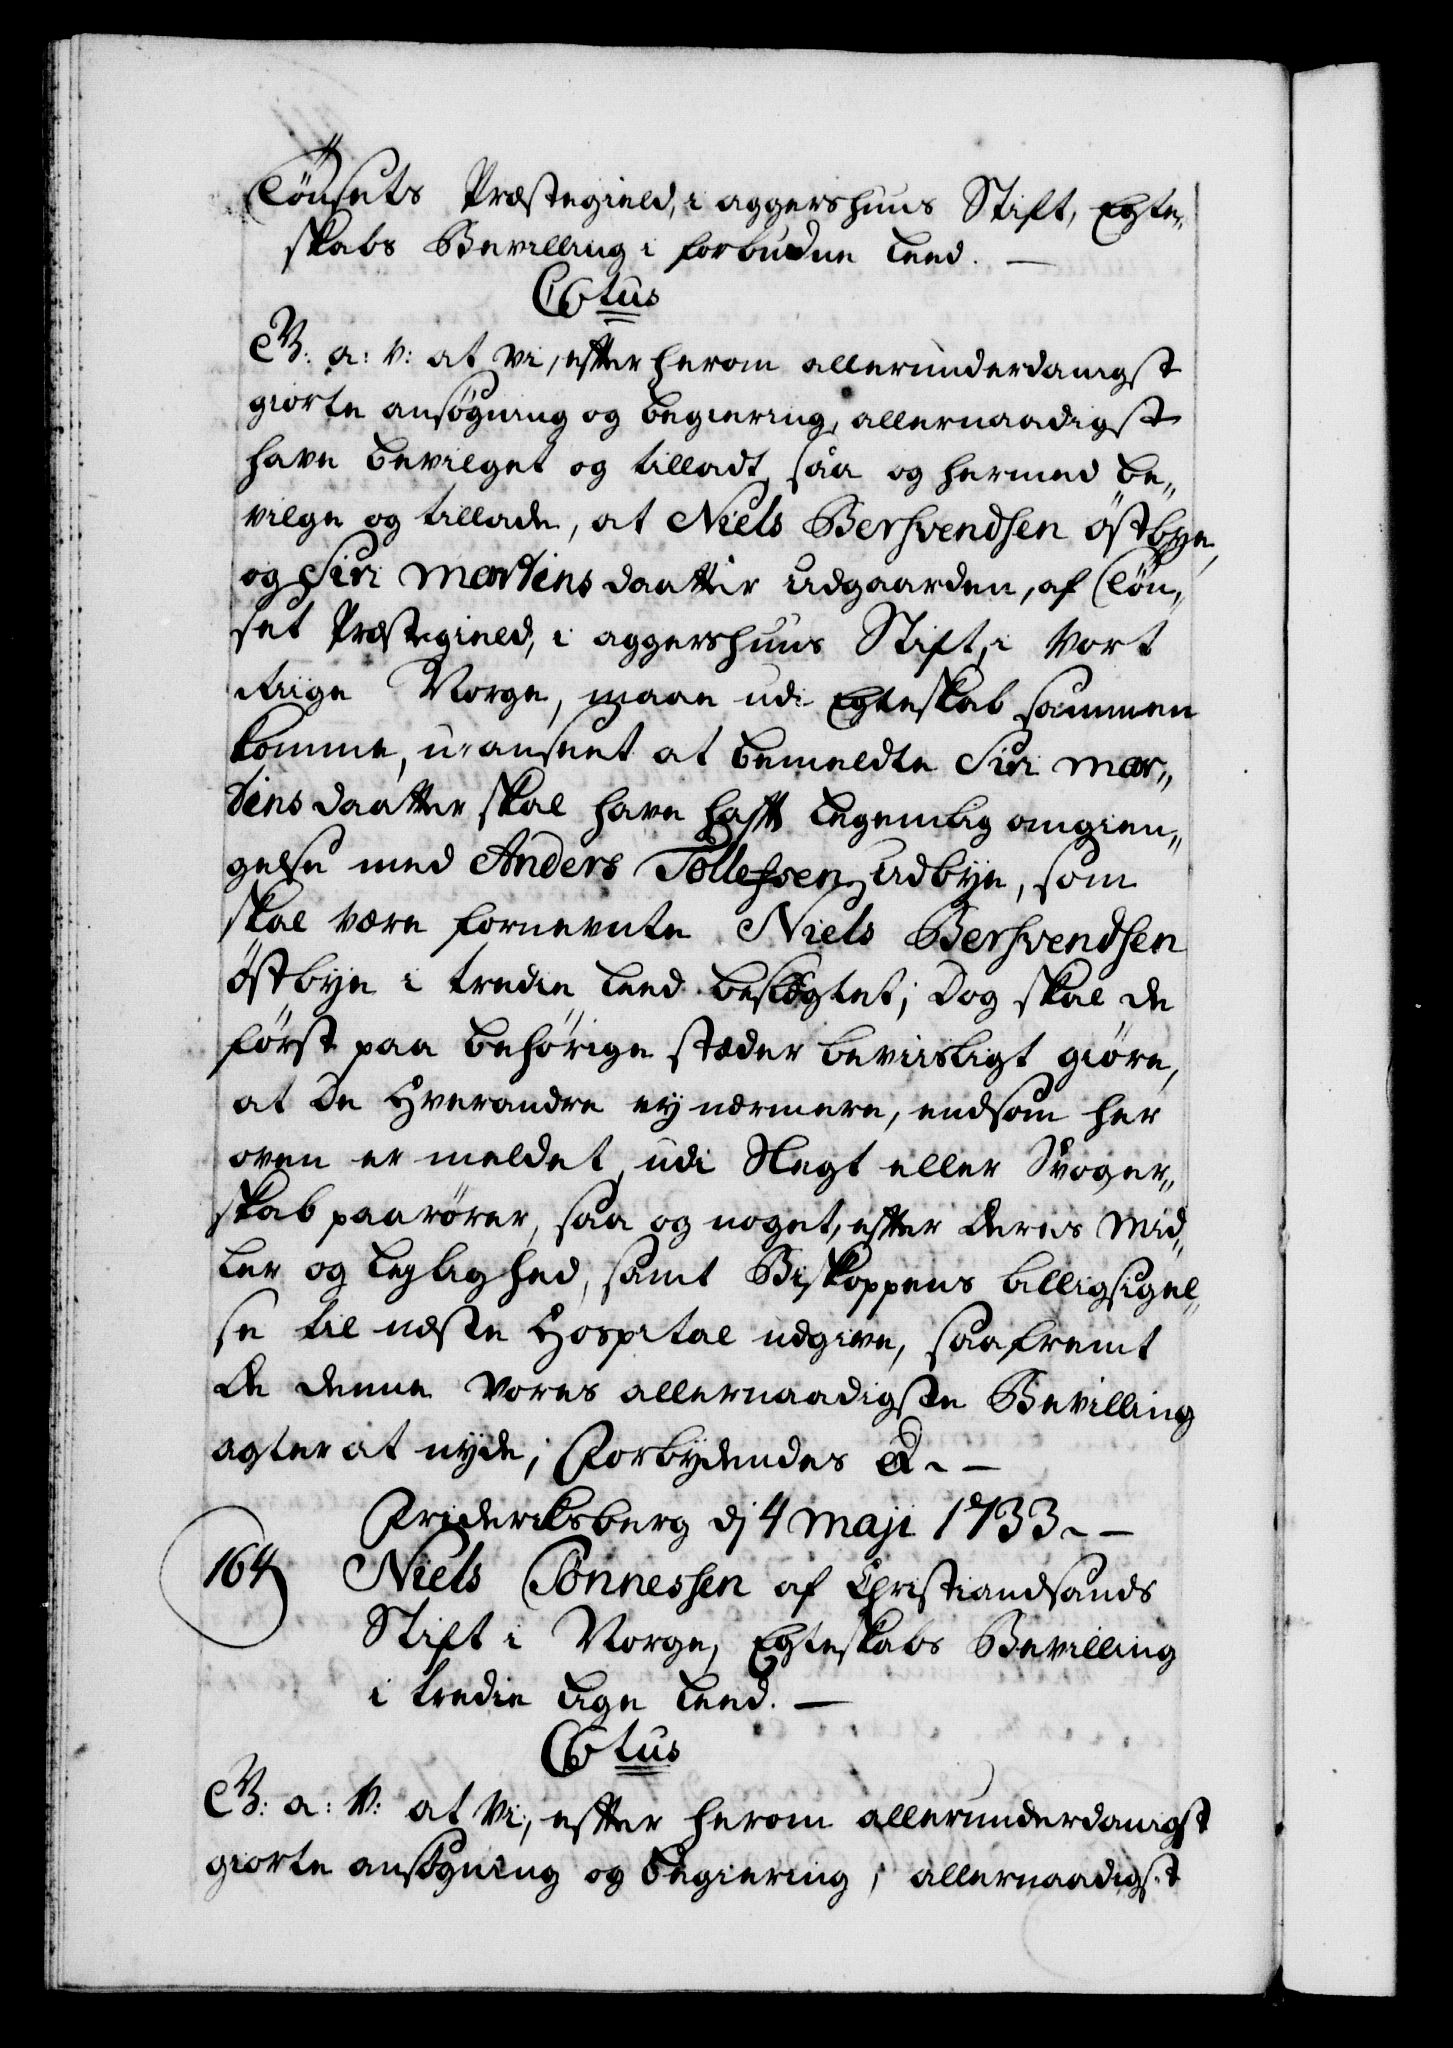 Tönsets Præstegield, i aggershuus Stift, Egte„
skabs Bevilling i forbudne Leed. —
C6tus
G: a: V: at Vi, efter herom allerunderdanigst
giorte ansøgning og begiering, allernaadigst
have bevilget og tilladt, saa og hermed be„
vilge og tillade, at Niels Bersvendsen östbye,
og Siri Martinsdaatter Udgaarden, af Tön„
set Præstegield, i aggershuus Stift, i Vort
Riige Norge, maae udi Egteskab sammen
komme, u-anseet at bemeldte Siri Mar„
tinsdaatter skal have hafft legemlig omgien„
gelse med Anders Tollefsen Udbye, som
skal være fornevnte Niels Bersvendsen
östbye i tredie Leed beslægtet; Dog skal de
først paa behörige stæder beviisligt giöre,
at De Hverandre ey nærmere, endsom her
oven er meldet, udi Slegt eller Svoger„
skab paarörer, saa og noget, efter deres Mid„
ler og leylighed, samt Biskoppens billigsigel„
se til næste Hospital udgive, saafremt
De denne Vores allernaadigste Bevilling
agter at nyde; Forbydendes &. —
Frideriksberg dj 4 Maji 1733. —
164 Niels Tönnessen af Christiandsands
Stift i Norge, Egteskabs Bevilling
i tredie Lige Leed. —
C6tus
G: a: V: at Vi, efter herom allerunderdanigst
giorte ansøgning og begiering, allernaadigst